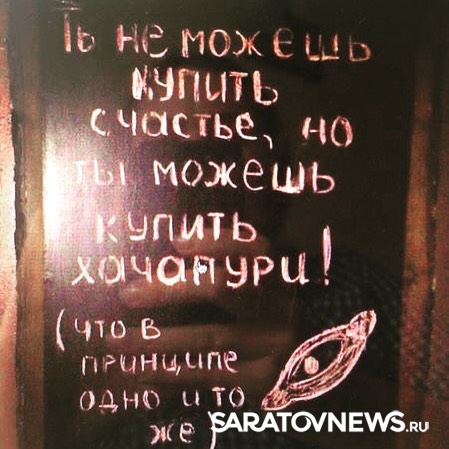 Ть не можешь
купить
счастье, но
ты можешь
купить
хачапури!
(что в
принципе
одно и то
же)
SARATOVNEWS.RU